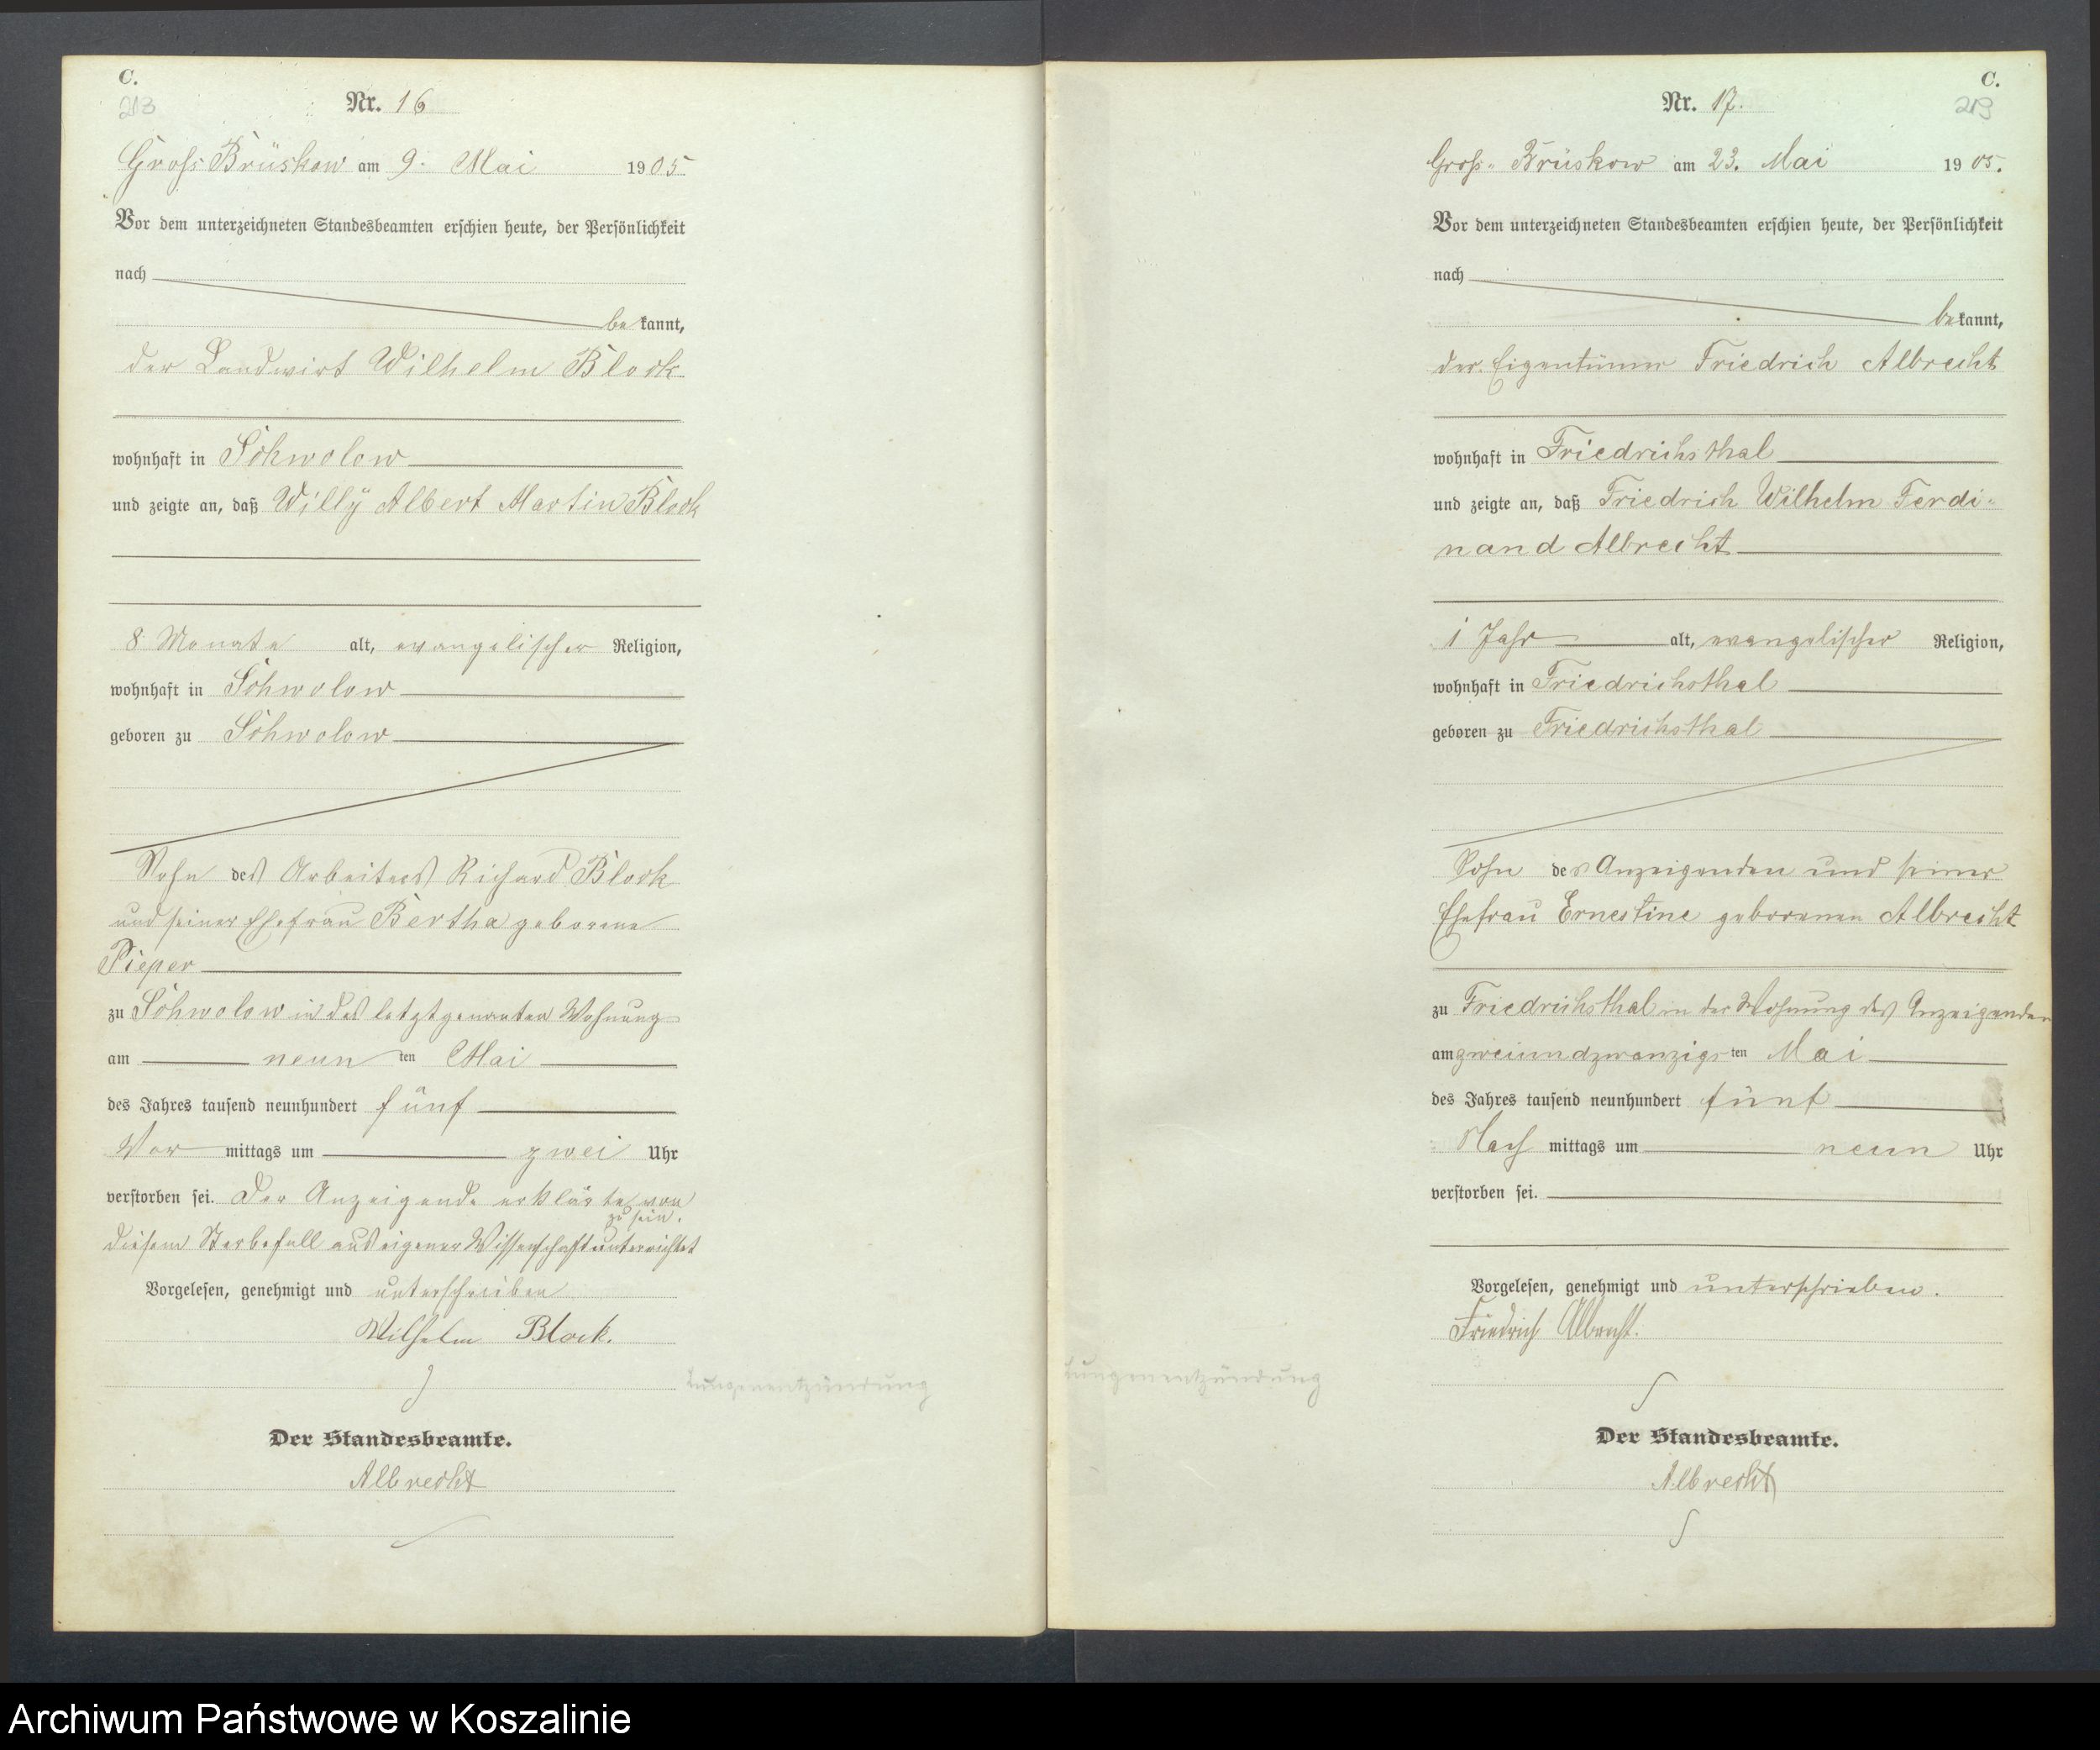 C.
213
Nr. 16
Gross Brüskow am 9. Mai 1905.
Vor dem unterzeichneten Standesbeamten erschien heute, der Persönlichkeit
nach
be kannt,
der Landwirt Wilhelm Block
wohnhaft in Schwolow
und zeigte an, daß Willÿ Albert Martin Block
8 Monate alt, evangelischer Religion,
wohnhaft in Schwolow
geboren zu Schwolow
Sohn des Arbeiters Richard Block
und seiner Ehefrau Bertha geborene
Pieper
zu Schwolow in der letztgenannten Wohnung
am neun ten Mai
des Jahres tausend neunhundert fünf
Vor mittags um zwei Uhr
verstorben sei. Der Anzeigende erklärte, von
zu sein.
diesem Sterbefall aus eigener Wissenschaft unterrichtet
Vorgelesen, genehmigt und unterschrieben
Wilhelm Block.
Lungenentzündung
Der Standesbeamte.
Albrecht
C.
219
Nr. 17.
Gross-Brüskow am 23. Mai 1905.
Vor dem unterzeichneten Standesbeamten erschien heute, der Persönlichkeit
nach
bekannt,
der Eigentümer Friedrich Albrecht
wohnhaft in Friedrichsthal
und zeigte an, daß Friedrich Wilhelm Ferdi-
nand Albrecht
1 Jahr alt, evangelischer Religion,
wohnhaft in Friedrichsthal
geboren zu Friedrichsthal
Sohn des Anzeigenden und seiner
Ehefrau Ernestine geborenen Albrecht
zu Friedrichsthal in der Wohnung des Anzeigenden
am zweiundzwanzigsten Mai
des Jahres tausend neunhundert fünf
Nach mittags um neun Uhr
verstorben sei.
Vorgelesen, genehmigt und unterschrieben.
Friedrich Albrecht.
Lungenentzündung
Der Standesbeamte.
Albrecht
Archiwum Państwowe w Koszalinie